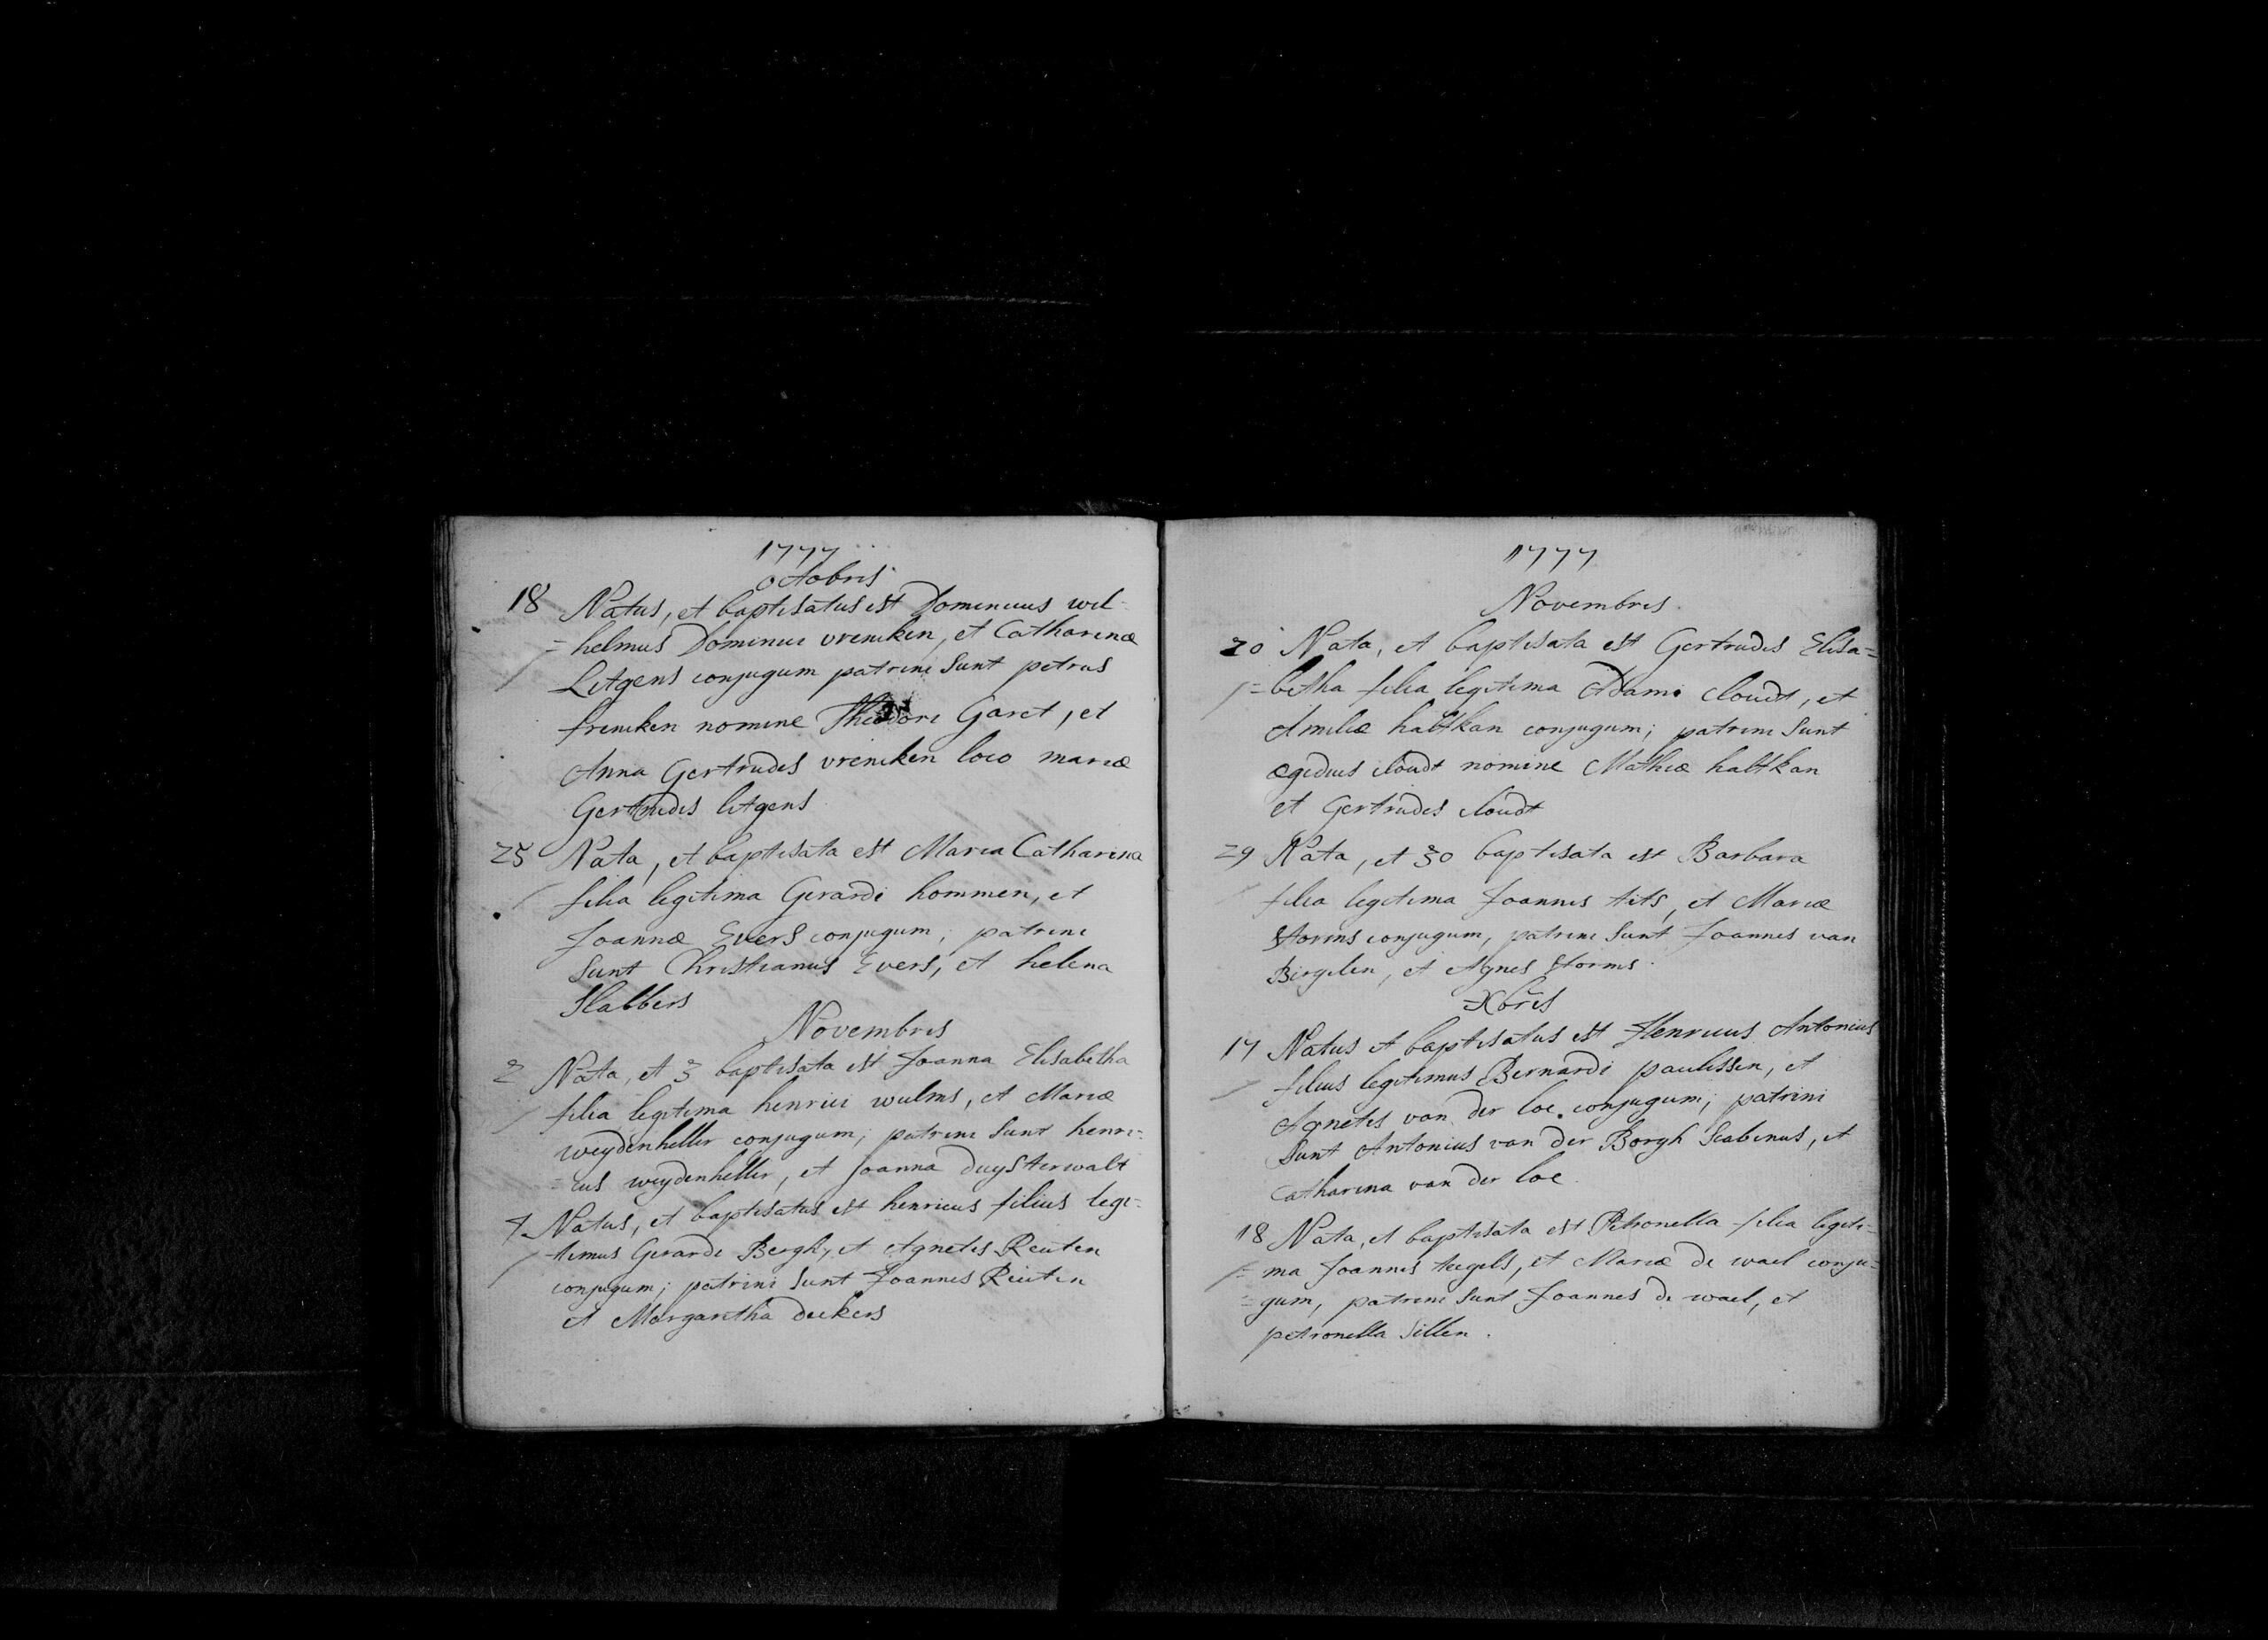 1777
octobris
18 Natus, et baptisatus est Dominicus wil=
=helmus Dominici vrencken, et Catharinæ
Litgens conjugum patrini sunt petrus
frencken nomine Theodori Garet, et
Anna Gertrudis vrencken loco mariæ
Gertrudis litgens
25 Nata, et baptisata est Maria Catharina
filia legitima Gerardi hommen, et
Joannæ Evers conjugum, patrini
sunt Christianus Evers, et helena
Slabbers
Novembris
2 Nata, et 3 baptisata est Joanna Elisabetha
filia legitima henrici wulms, et Mariæ
weydenheller conjugum; patrini sunt henri=
=cus weydenheller, et Joanna duysterwalt
7 Natus, et baptisatus est henricus filius legi=
timus Gerardi Bergh, et Agnetis Reuten
conjugum; patrini sunt Joannes Reuten
et Margaretha deckers
1777
Novembris.
20 Nata, et baptisata est Gertrudis Elisa=
=betha filia legitima Adami cloudt, et
Amiliæ haltkan conjugum; patrini sunt
ægidius cloudt nomine Mathiæ haltkan
et Gertrudis cloudt
29 Nata, et 30 baptisata est Barbara
filia legitima Joannis tits, et Mariæ
storms conjugum, patrini sunt Joannes van
Birgelen, et Agnes storms.
Xbris
17 Natus et baptisatus est Henricus Antonius
filius legitimus Bernardi paulissen, et
Agnetis van der loe conjugum; patrini
sunt Antonius van der Borgh Scabinus, et
Catharina van der loe.
18 Nata, et baptisata est Petronella filia legiti=
=ma Joannis teegels, et Mariæ de wael conju=
=gum, patrini sunt Joannes de wael, et
petronella sillen.